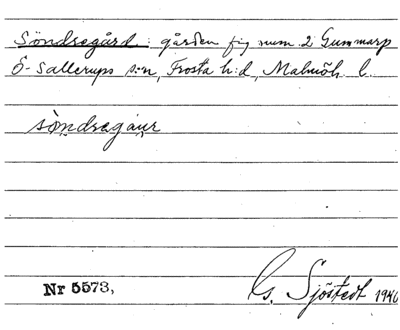 Söndregård: gården fig num. 2 Gummarp
Ö. Sallerups s:n, Frosta h:d, Malmöh. l.
söndregaur
Nr 5573,
G. Sjöstedt 1940